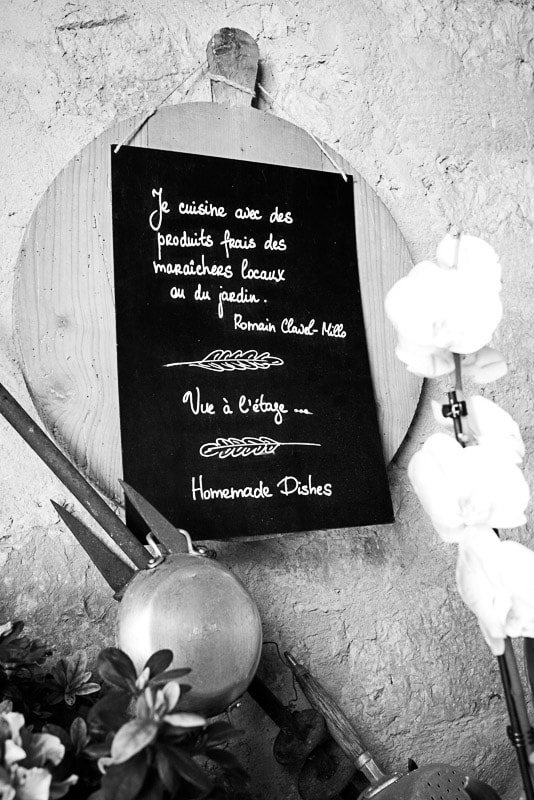 Je cuisine avec des
produits frais des
maraîchers locaux
ou du jardin.
Romain Clavel-Millo
Vue à l'étage ...
Homemade Dishes